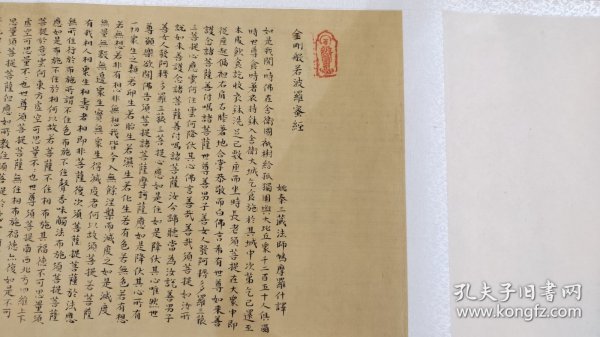 金剛般若波羅蜜經
姚秦三藏法師鳩摩羅什譯
如是我聞一時佛在舍衛國祇樹給孤獨園與大比丘衆千二百五十人俱爾
時世尊食時著衣持鉢入舍衛大城乞食於其城中次第乞已還至
本處飯食訖收衣鉢洗足已敷座而坐時長老須菩提在大衆中即
從座起偏袒右肩右膝著地合掌恭敬而白佛言希有世尊如來善
護念諸菩薩善付囑諸菩薩世尊善男子善女人發阿耨多羅三藐
三菩提心應云何住云何降伏其心佛言善哉善哉須菩提如汝所
說如來善護念諸菩薩善付囑諸菩薩汝今諦聽當為汝說善男子
善女人發阿耨多羅三藐三菩提心應如是住如是降伏其心唯然世
尊願樂欲聞佛告須菩提諸菩薩摩訶薩應如是降伏其心所有
一切衆生之類若卵生若胎生若濕生若化生若有色若無色若有想
若無想若非有想非無想我皆令入無餘涅槃而滅度之如是滅度
無量無數無邊衆生實無衆生得滅度者何以故須菩提若菩薩
有我相人相衆生相壽者相即非菩薩復次須菩提菩薩於法應
無所住行於布施所謂不住色布施不住聲香味觸法布施須菩提菩薩
應如是布施不住於相何以故若菩薩不住相布施其福德不可思量須
菩提於意云何東方虛空可思量不不也世尊須菩提南西北方四維上下
虛空可思量不不也世尊須菩提菩薩無住相布施福德亦復如是不可
思量須菩提菩薩但應如所教住須菩提
孔夫子旧书网